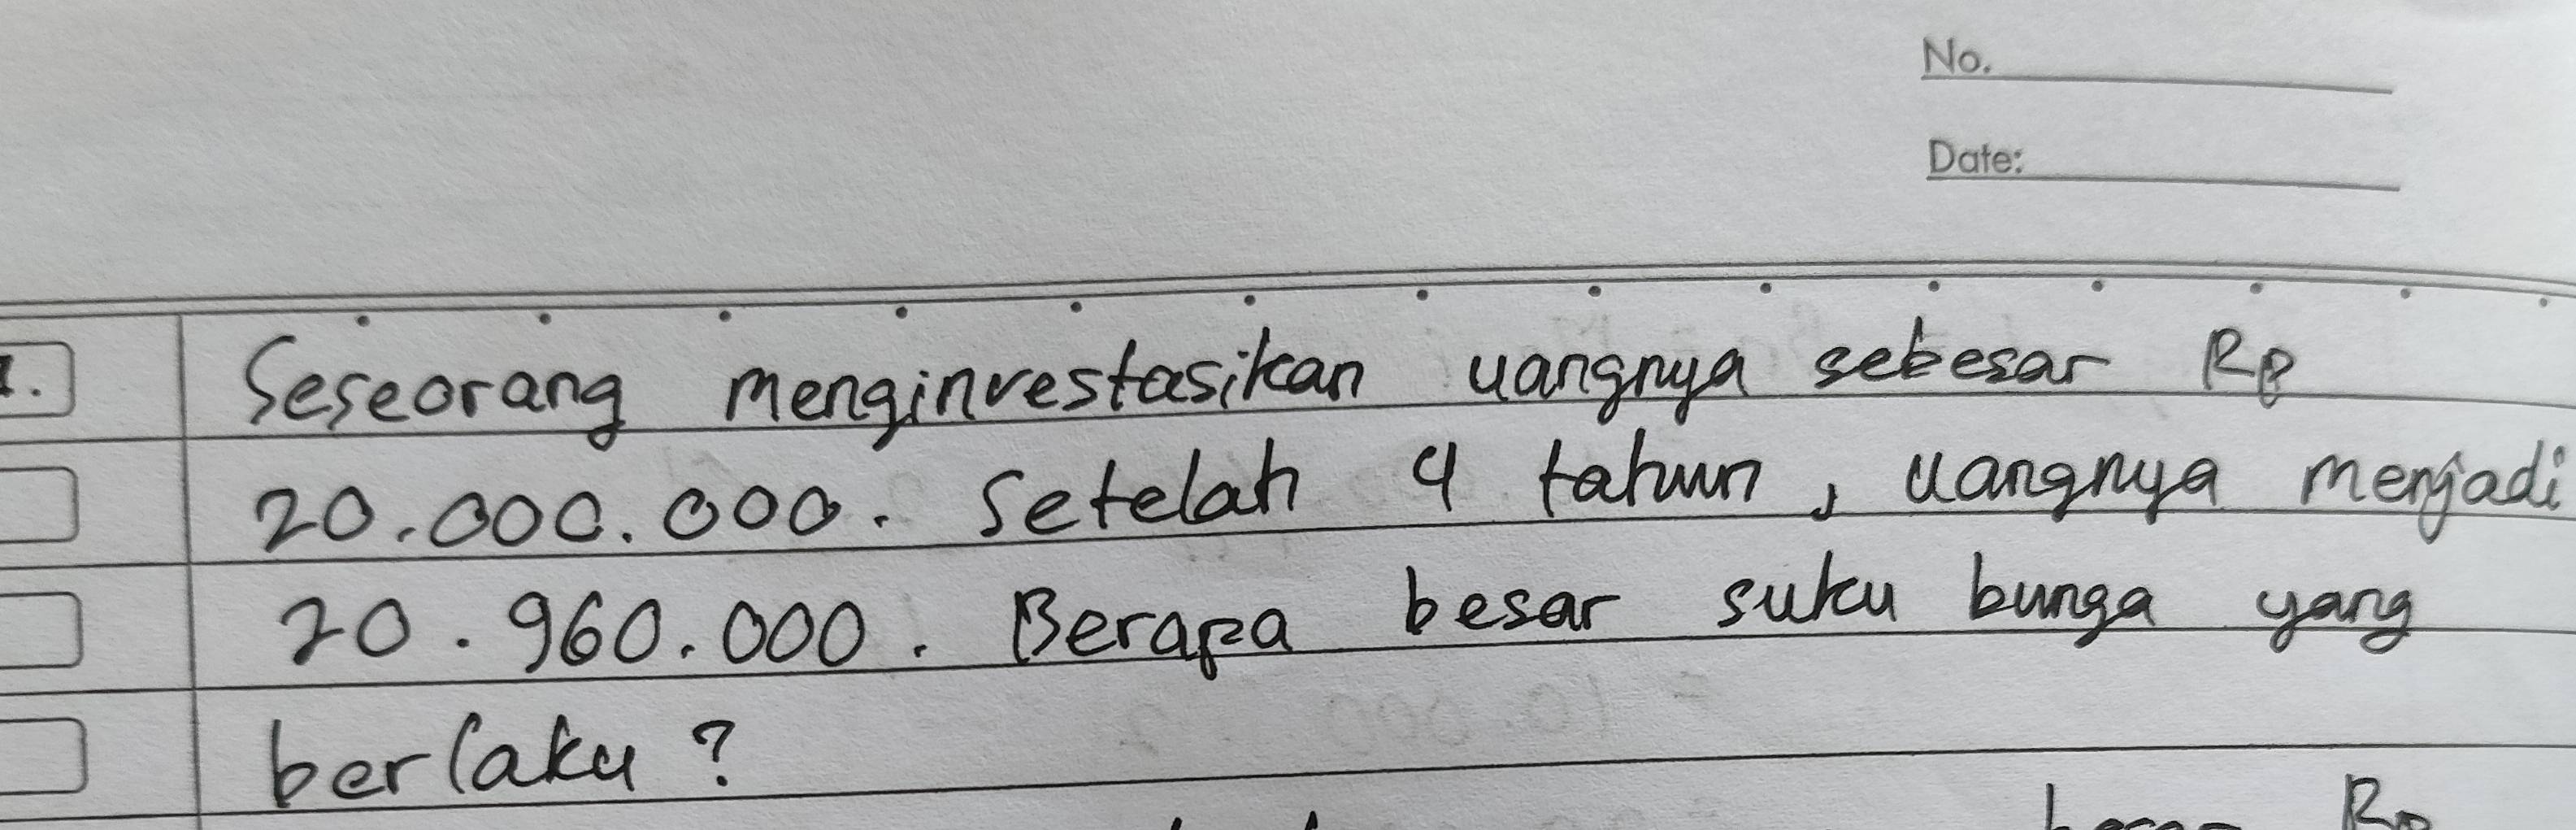 No.
Date:
1. Seseorang menginvestasikan uangnya sebesar Rp
20.000.000. Setelah 4 tahun, uangnya menjadi
20.960.000. Berapa besar suku bunga yang
berlaku?
Rp